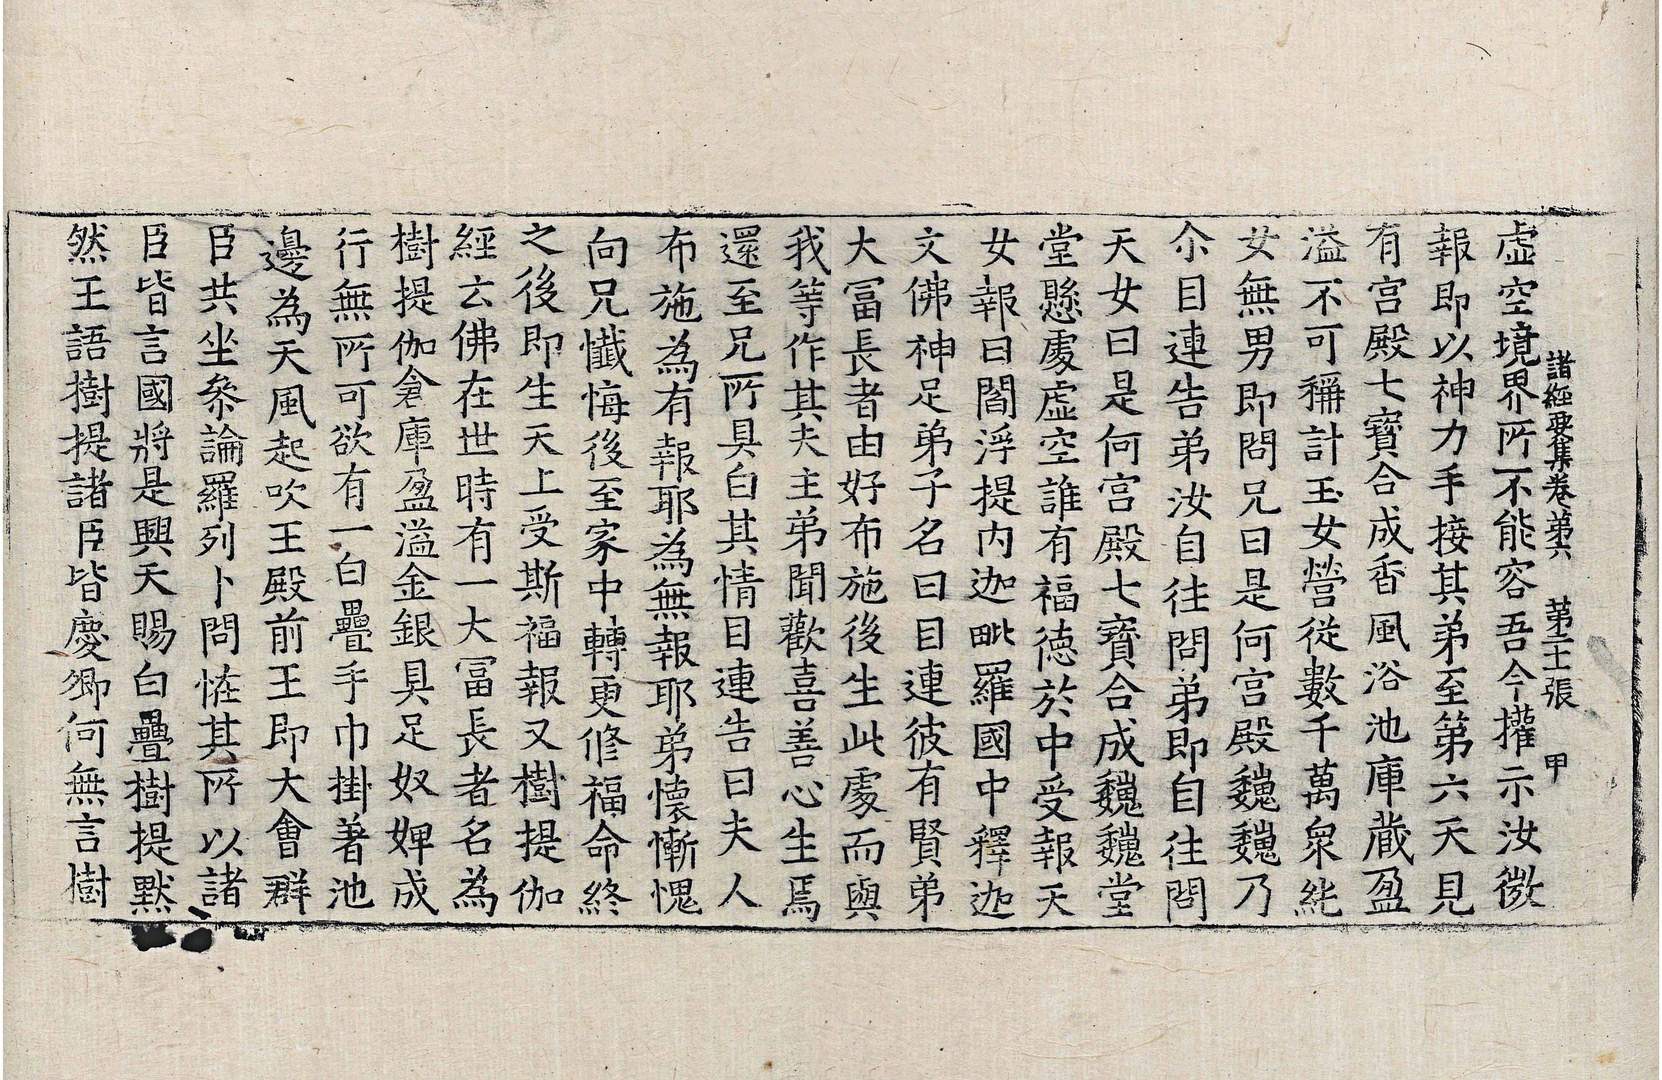 諸經要集卷第六 第二十張 甲
虛空境界所不能容吾今權示汝微
報即以神力手接其弟至第六天見
有宮殿七寶合成香風浴池庫藏盈
溢不可稱計玉女營從數千萬衆純
女無男即問兄曰是何宮殿巍巍乃
尒目連告弟汝自往問弟即自往問
天女曰是何宮殿七寶合成巍巍堂
堂懸處虛空誰有福德於中受報天
女報曰閻浮提內迦毗羅國中釋迦
文佛神足弟子名曰目連彼有賢弟
大冨長者由好布施後生此處而與
我等作其夫主弟聞歡喜善心生焉
還至兄所具白其情目連告曰夫人
布施為有報耶為無報耶弟懷慚愧
向兄懺悔後至家中轉更修福命終
之後即生天上受斯福報又樹提伽
經云佛在世時有一大冨長者名為
樹提伽倉庫盈溢金銀具足奴婢成
行無所可欲有一白疊手巾掛著池
邊為天風起吹王殿前王即大會群
臣共坐叅論羅列卜問恠其所以諸
臣皆言國將是興天賜白疊樹提默
然王語樹提諸臣皆慶卿何無言樹